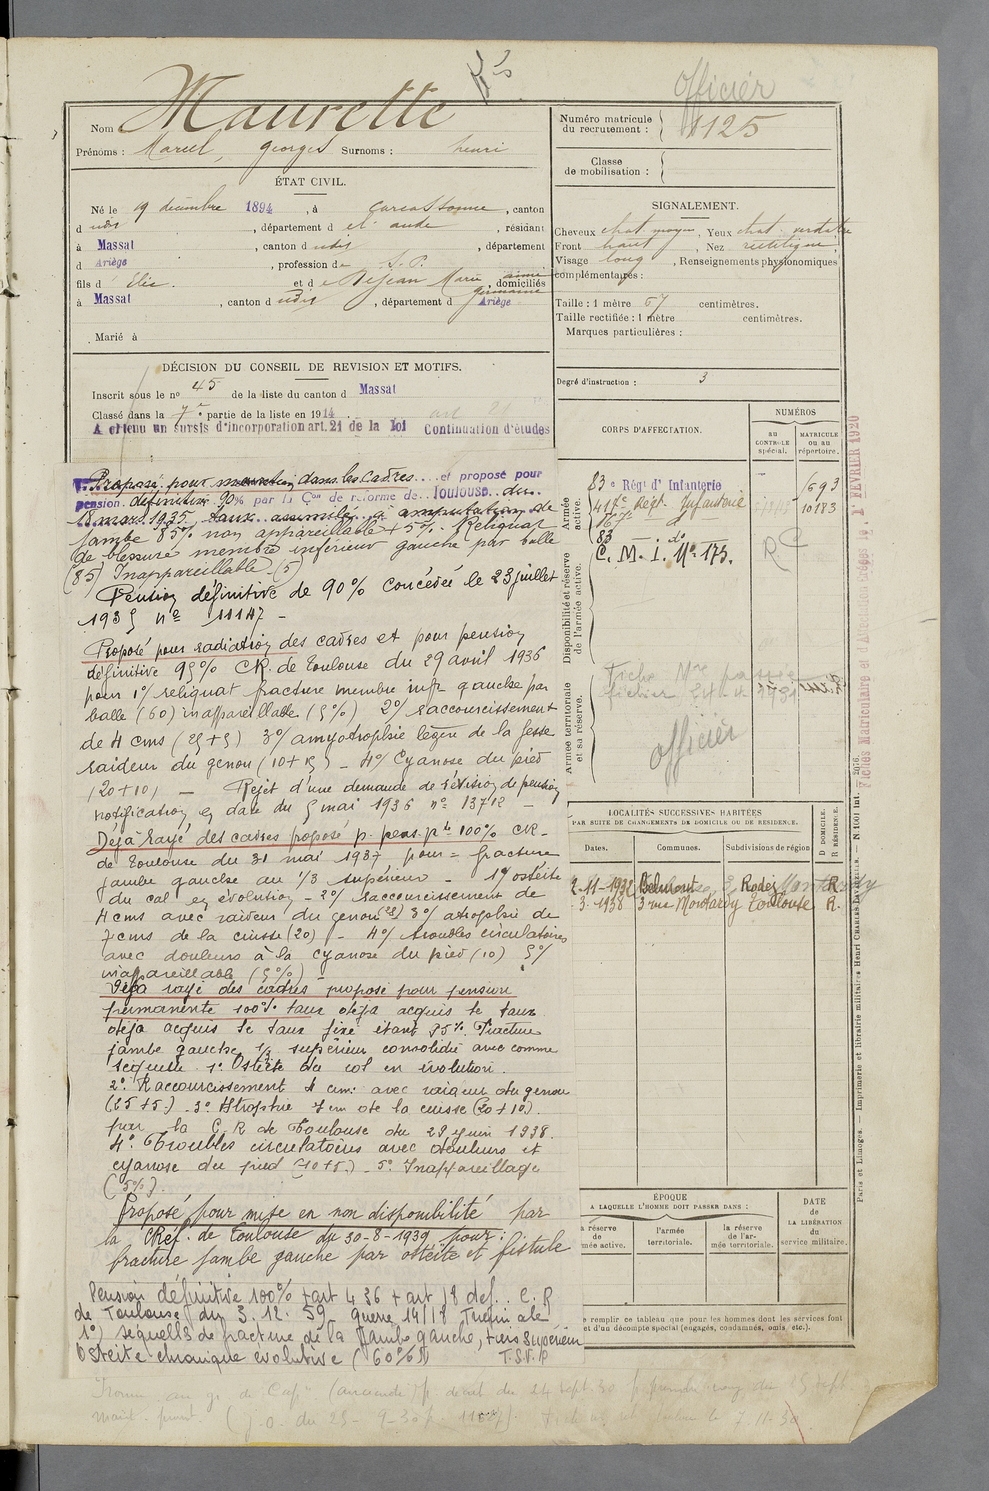 Officier
Nom Maurette
Numéro matricule
du recrutement : 1125
Prénoms : Marcel, Georges Surnoms : henri
Classe
de mobilisation :
ÉTAT CIVIL.
Né le 19 décembre 1894, à Carcassonne, canton
d udis, département d et aude, résidant
à Massat, canton d udis, département
d Ariège, profession de S. P.
fils d' Elie. et d e Dejean Marie germaine domiciliés
à Massat, canton d udis, département d Ariège
Marié à
SIGNALEMENT.
Cheveux chat moyen, Yeux chat verdatre
Front haut, Nez rectiligne
Visage long, Renseignements physionomiques
complémentaires :
Taille : 1 mètre 67 centimètres.
Taille rectifiée : 1 mètre centimètres.
Marques particulières :
DÉCISION DU CONSEIL DE REVISION ET MOTIFS.
Inscrit sous le n° 45 de la liste du canton d Massat
Classé dans la 7e partie de la liste en 1914.
A obtenu un sursis d'incorporation art. 21 de la loi Continuation d'études
Degré d'instruction : 3
CORPS D'AFFECTATION.
NUMÉROS
AU CONTRÔLE spécial.
MATRICULE ou au répertoire.
Armée active.
83e Régt d'Infanterie 1693
Regt Infanterie 10183
83 do
C. M. I. No 175.
Disponibilité et réserve de l'armée active.
Armée territoriale et sa réserve.
Fiche Mle passée
officier
Proposé pour maintien dans les cadres et proposé pour
pension définitive 90% par la Con de réforme de Toulouse du
18 mars 1935, taux assimilé à amputation de
jambe 85% non appareillable + 5%. Reliquat
de blessure membre inférieur gauche par balle
(85) Inappareillable (5)
Pension définitive de 90% concédée le 23 juillet
1935 no 11147 -
Proposé pour radiation des cadres et pour pension
définitive 95% CR. de Toulouse du 29 avril 1936
pour 1°/ reliquat fracture membre infr gauche par
balle (60) inappareillable (5%) 2°/ raccourcissement
de 4 cms (25+5) 3°/ amyotrophie légère de la fesse
raideur du genou (10+15) - 4°/ Cyanose du pied
(20+10) - Rejet d'une demande de révision de pension
notification en date du 5 mai 1936 no 13712 -
Déjà rayé des cadres proposé p. pens. pte 100% CR.
de Toulouse du 31 mai 1937 pour = fracture
jambe gauche au 1/3 supérieur - 1° ostéite
du cal en évolution - 2°/ raccourcissement de
4 cms avec raideur du genou 3°/ atrophie de
7 cms de la cuisse (20) - 4°/ troubles circulatoires
avec douleurs à la cyanose du pied (10) 5°/
inappareillable (5%) -
Déjà rayé des cadres proposé pour pension
permanente 100% taux déjà acquis le taux
déjà acquis le taux fixé étant 95%. Fracture
jambe gauche 1/3 supérieur consolidée avec comme
sequelle 1° Ostéite du col en évolution.
2° Raccourcissement 4 cm: avec raideur du genou
(25+5.) - 3° Atrophie 7 cm de la cuisse (20+10).
par la C. R de Toulouse du 28 juin 1938.
4° Troubles circulatoires avec douleurs et
cyanose du pied (10+5.) - 5° Inappareillage
(5%).
Proposé pour mise en non disponibilité par
la C Réf. de Toulouse du 30-8-1939 pour :
fracture jambe gauche par ostéite et fistule
Pension définitive 100% + art 4 36 + art 18 def. C. R
de Toulouse du 3. 12. 59 guerre 14/18
1°) sequelles de fracture de la jambe gauche, tiers supérieur
Ostéite chronique évolutive (60%) T.S.V.P
LOCALITÉS SUCCESSIVES HABITÉES
PAR SUITE DE CHANGEMENTS DE DOMICILE OU DE RÉSIDENCE.
Dates. Communes. Subdivisions de région D DOMICILE. R RÉSIDENCE.
2-11-1932 Belmont Rodez R
.3.1938 3 rue Montardy Toulouse R.
ÉPOQUE
A LAQUELLE L'HOMME DOIT PASSER DANS :
la réserve de l'armée territoriale.
l'armée territoriale.
DATE de LA LIBÉRATION du service militaire.
remplir ce tableau que pour les hommes dont les services font
et d'un décompte spécial (engagés, condamnés, omis, etc.).
Paris et Limoges. — Imprimerie et librairie militaires Henri CHARLES-LAVAUZELLE.
1er FÉVRIER 1920